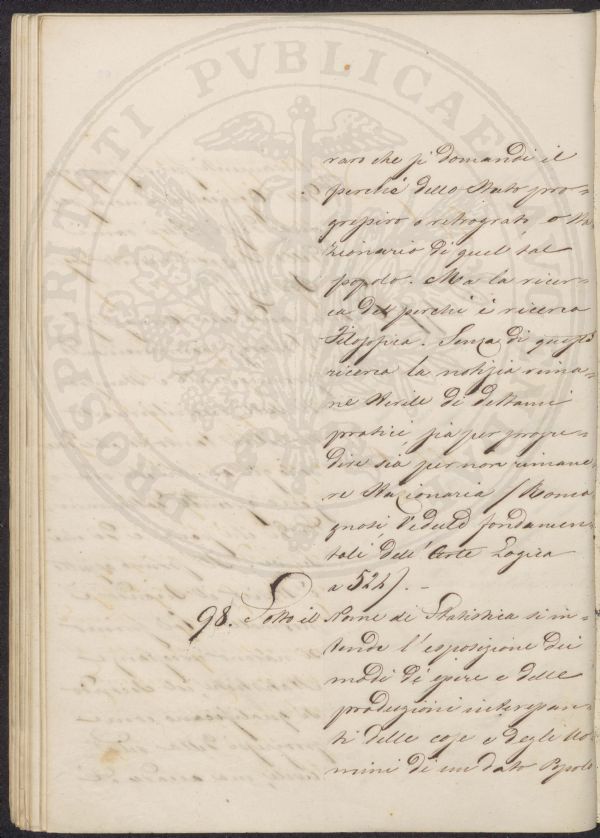 PROSPERITATI PVBLICAE
raro che si domandi il
perchè dello Stato pro=
gressivo o retrogrado, o Sta
zionario di quel tal
popolo. Ma la ricer=
ca del perchè è ricerca
Filosofica. Senza di questa
ricerca la notizia rima=
ne sterile di dettami
pratici, sia per progre=
dire sia per non rimane
re Stazionaria (Roma
gnosi Vedute fondamen
tali dell'Arte Logica
a 524). -
98. Sotto il Nome di Statistica si in=
tende l'esposizione dei
modi di essere e delle
produzioni interessan=
ti delle cose e degli Uo=
mini di un dato Popolo